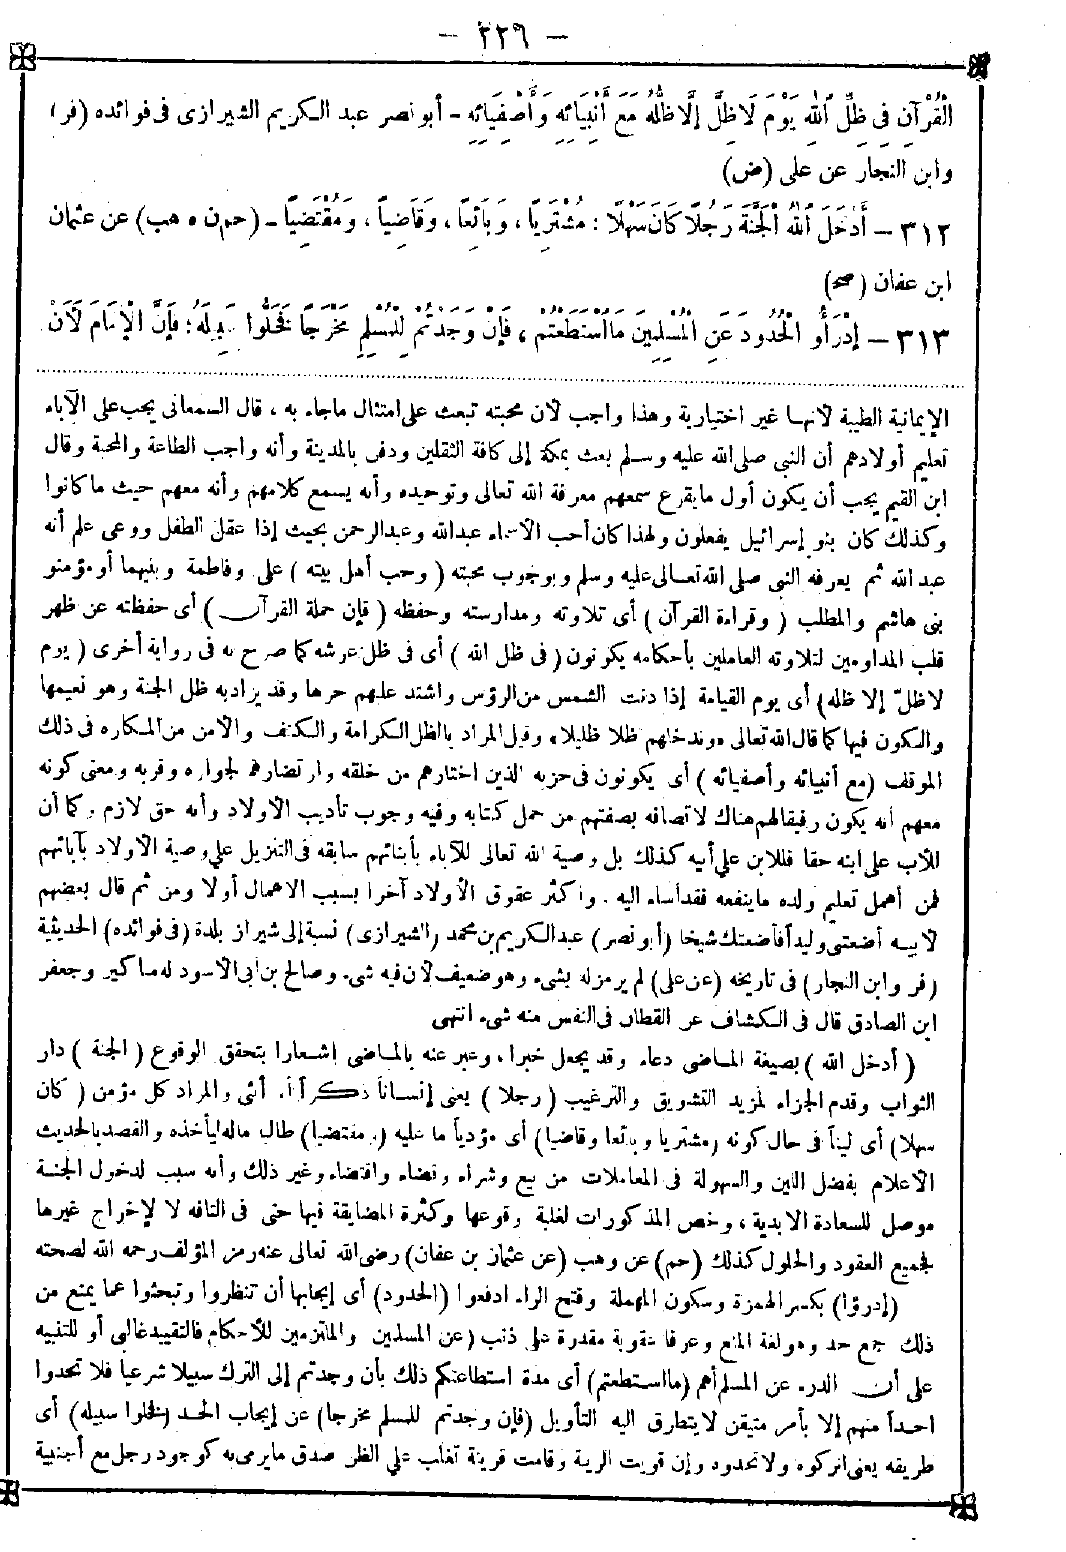 — ٢٢٦ —
الْقُرْآنِ فِي ظِلِّ اللهِ يَوْمَ لَا ظِلَّ إِلَّا ظِلُّهُ مَعَ أَنْبِيَائِهِ وَأَصْفِيَائِهِ - أبو نصر عبد الكريم الشيرازى فى فوائده (فر)
وابن النجار عن على (ض)
٣١٢ — أَدْخَلَ اللهُ الْجَنَّةَ رَجُلًا كَانَ سَهْلًا : مُشْتَرِيًا ، وَبَائِعًا ، وَقَاضِيًا ، وَمُقْتَضِيًا - (حم ن ه هب) عن عثمان
ابن عفان (صح)
٣١٣ — إِدْرَأُو الْحُدُودَ عَنِ الْمُسْلِمِينَ مَا اسْتَطَعْتُمْ ، فَإِنْ وَجَدْتُمْ لِلْمُسْلِمِ مَخْرَجًا فَخَلُّوا سَبِيلَهُ ؛ فَإِنَّ الْإِمَامَ لَأَنْ
الإيمانية الطيبة لأنها غير اختيارية وهذا واجب لأن محبته تبعث على امتثال ما جاء به ، قال السمعانى يجب على الآباء
تعليم أولادهم أن النبى صلى الله عليه وسلم بعث بمكة إلى كافة الثقلين ودفن بالمدينة وأنه واجب الطاعة والمحبة وقال
ابن القيم يجب أن يكون أول ما يقرع سمعهم معرفة الله تعالى وتوحيده وأنه يسمع كلامهم وأنه معهم حيث ما كانوا
وكذلك كان بنو إسرائيل يفعلون ولهذا كان أحب الأسماء عبد الله وعبد الرحمن بحيث إذا عقل الطفل ووعى علم أنه
عبد الله ثم يعرفه النبى صلى الله تعالى عليه وسلم وبوجوب محبته (وحب أهل بيته) على وفاطمة وبنيهما أو مؤمنو
بنى هاشم والمطلب (وقراءة القرآن) أى تلاوته ومدارسته وحفظه (فإن حملة القرآن) أى حفظته عن ظهر
قلب المداومين لتلاوته العاملين بأحكامه يكونون (فى ظل الله) أى فى ظل عرشه كما صرح به فى رواية أخرى (يوم
لا ظلّ إلا ظله) أى يوم القيامة إذا دنت الشمس من الرؤس واشتد عليهم حرها وقد يراد به ظل الجنة وهو نعيمها
والكون فيها كما قال الله تعالى «وندخلهم ظلا ظليلا» وقيل المراد بالظل الكرامة والكنف والأمن من المكاره فى ذلك
الموقف (مع أنبيائه وأصفيائه) أى يكونون فى حزبه الذين اختارهم من خلقه وارتضاهم لجواره وقربه ومعنى كونه
معهم أنه يكون رفيقا لهم هناك لاتصافه بصفتهم من حمل كتابه وفيه وجوب تأديب الأولاد وأنه حق لازم وكما أن
للأب على ابنه حقا فللابن على أبيه كذلك بل وصية الله تعالى للآباء بأبنائهم سابقة فى التنزيل على وصية الأولاد بآبائهم
فمن أهمل تعليم ولده ما ينفعه فقد أساء اليه . وأكثر عقوق الأولاد آخرا بسبب الاهمال أولا ومن ثم قال بعضهم
لأبيه أضعتنى وليداً فأضعتك شيخا (أبو نصر) عبد الكريم بن محمد (الشيرازى) نسبة إلى شيراز بلدة (فى فوائده) الحديثية
(فر وابن النجار) فى تاريخه (عن على) لم يرمز له بشىء وهو ضعيف لأن فيه شىء وصالح بن أبى الأسود له مناكير وجعفر
ابن الصادق قال فى الكشاف عن القطان فى النفس منه شىء انتهى
(أدخل الله) بصيغة الماضى دعاء وقد يجعل خبرا ، وعبر عنه بالماضى إشعارا بتحقق الوقوع (الجنة) دار
الثواب وقدم الجزاء لمزيد التشويق والترغيب (رجلا) يعنى إنسانا ذكراً أو أنثى والمراد كل مؤمن (كان
سهلا) أى ليناً فى حال كونه (مشتريا وبائعا وقاضيا) أى مؤدياً ما عليه (ومقتضيا) طالبا ماله ليأخذه والقصد بالحديث
الاعلام بفضل اللين والسهولة فى المعاملات من بيع وشراء وقضاء واقتضاء وغير ذلك وأنه سبب لدخول الجنة
موصل للسعادة الأبدية ، وخص المذكورات لغلبة وقوعها وكثرة المضايقة فيها حتى فى التافه لا لإخراج غيرها
فجميع العقود والحلول كذلك (حم) عن وهب (عن عثمان بن عفان) رضى الله تعالى عنه رمز المؤلف رحمه الله لصحته
(إدرؤا) بكسر الهمزة وسكون المهملة وفتح الراء ادفعوا (الحدود) أى إيجابها أن تنظروا وتبحثوا عما يمنع من
ذلك جمع حد وهو لغة المنع وعرفا عقوبة مقدرة على ذنب (عن المسلمين) والملتزمين للأحكام فالتقييد غالبى أو للتنبيه
على أن الدرء عن المسلم أهم (ما استطعتم) أى مدة استطاعتكم ذلك بأن وجدتم إلى الترك سبيلا شرعيا فلا تحدوا
احداً منهم إلا بأمر متيقن لا يتطرق اليه التأويل (فإن وجدتم للمسلم مخرجا) عن إيجاب الحد (فخلوا سبيله) أى
طريقه يعنى اتركوه ولا تحدوه وإن قويت الريبة وقامت قرينة تغلب على الظن صدق ما يرمى به كوجود رجل مع أجنبية